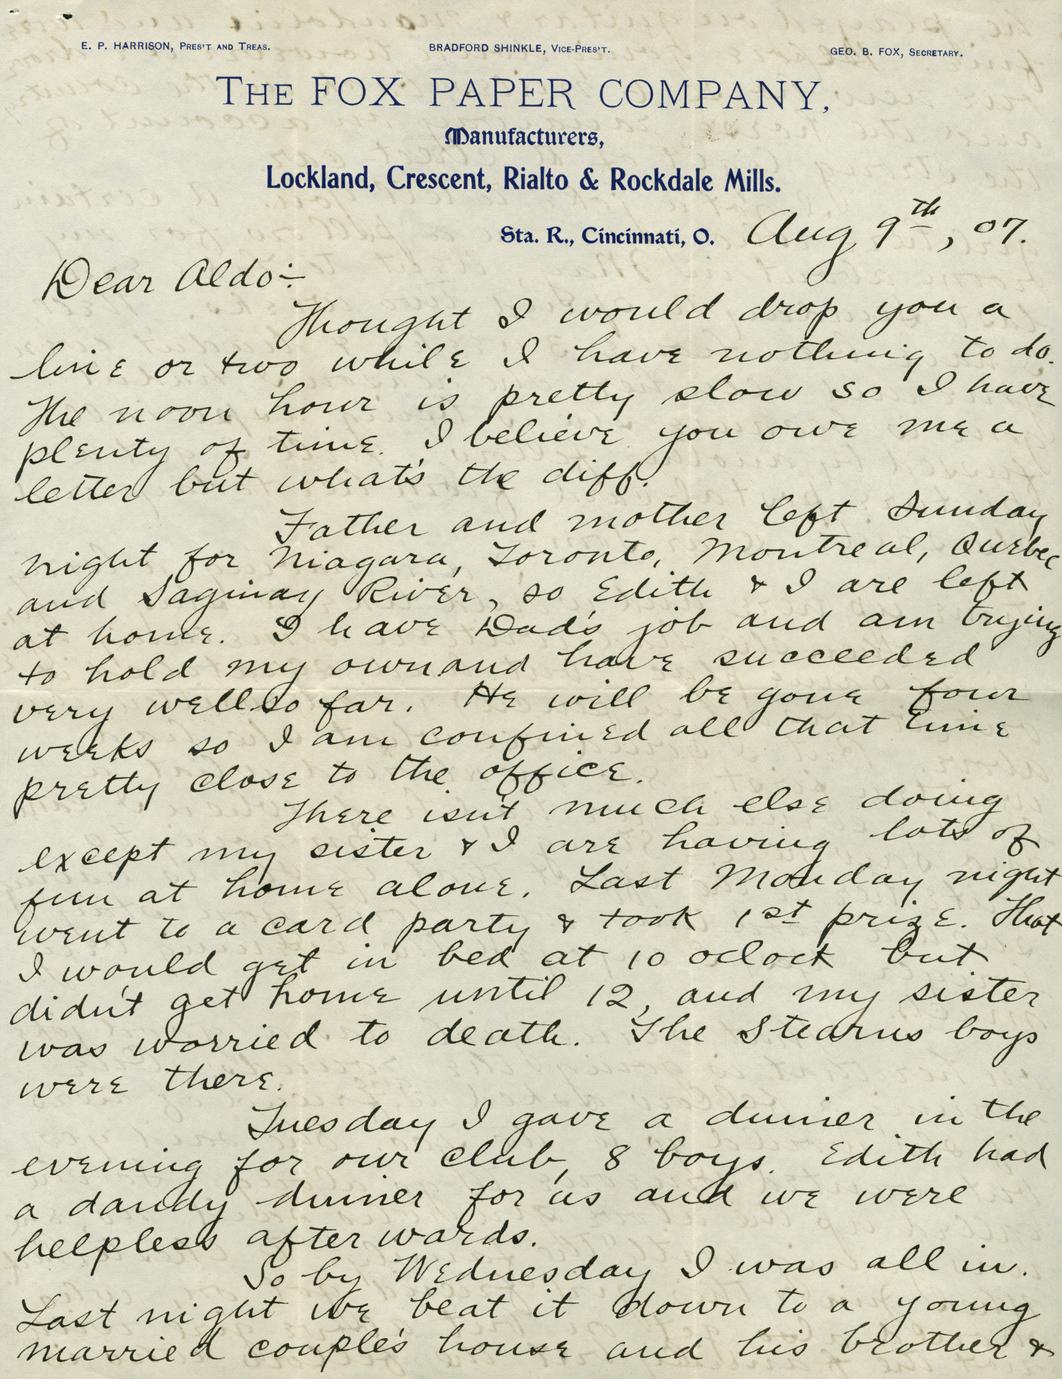 E. P. HARRISON, PRES'T AND TREAS.
BRADFORD SHINKLE, VICE-PRES'T.
GEO. B. FOX, SECRETARY.
THE FOX PAPER COMPANY,
Manufacturers,
Lockland, Crescent, Rialto & Rockdale Mills.
Sta. R., Cincinnati, O. Aug 9th, 07.
Dear Aldo:-
Thought I would drop you a
line or two while I have nothing to do.
The noon hour is pretty slow so I have
plenty of time. I believe you owe me a
letter but what's the diff.
Father and mother left Sunday
night for Niagara, Toronto, Montreal, Quebec
and Saginay River, so Edith & I are left
at home. I have Dad's job and am trying
to hold my own and have succeeded
very well so far. He will be gone four
weeks so I am confined all that time
pretty close to the office.
There isn't much else doing
except my sister & I are having lots of
fun at home alone. Last Monday night
went to a card party & took 1st prize. That
I would get in bed at 10 oclock but
didn't get home until 12, and my sister
was worried to death. The Stearns boys
were there.
Tuesday I gave a dinner in the
evening for our club, 8 boys. Edith had
a dandy dinner for us and we were
helpless after wards.
So by Wednesday I was all in.
Last night we beat it down to a young
married couple's house and his brother &